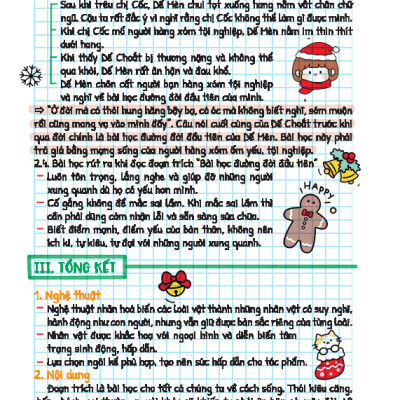 Sau khi trêu chị Cốc, Dế Mèn chui tọt xuống hang nằm vắt chân chữ
ngũ. Cậu ta rất đắc ý vì nghĩ rằng chị Cốc không thể làm gì được mình.
- Khi chị Cốc mổ người hàng xóm tội nghiệp, Dế Mèn nằm im thin thít
dưới hang.
- Khi thấy Dế Choắt bị thương nặng và không thể
qua khỏi, Dế Mèn rất ân hận và đau khổ.
- Dế Mèn chôn cất người bạn hàng xóm tội nghiệp
và nghĩ về bài học đường đời đầu tiên của mình.
⇒ "Ở đời mà có thói hung hăng bậy bạ, có óc mà không biết nghĩ, sớm muộn
rồi cũng mang vạ vào mình đấy". Câu nói cuối cùng của Dế Choắt trước khi
qua đời chính là bài học đường đời đầu tiên của Dế Mèn. Bài học này phải
trả giá bằng mạng sống của người hàng xóm ốm yếu, tội nghiệp.
2.4. Bài học rút ra khi đọc đoạn trích "Bài học đường đời đầu tiên"
- Luôn tôn trọng, lắng nghe và giúp đỡ những người
xung quanh dù họ có yếu hơn mình.
- Cố gắng không để mắc sai lầm. Khi mắc sai lầm thì
cần phải dũng cảm nhận lỗi và sẵn sàng sửa chữa.
- Biết điểm mạnh, điểm yếu của bản thân, không nên
ích kỉ, tự kiêu, tự đại với những người xung quanh.
HAPPY
III. TỔNG KẾT
1. Nghệ thuật
- Nghệ thuật nhân hoá biến các loài vật thành những nhân vật có suy nghĩ,
hành động như con người, nhưng vẫn giữ được bản sắc riêng của từng loài.
- Nhân vật được khắc hoạ với ngoại hình và diễn biến tâm
trạng sinh động, hấp dẫn.
- Lựa chọn ngôi kể phù hợp, tạo nên sức hấp dẫn cho tác phẩm.
2. Nội dung
Đoạn trích là bài học cho tất cả chúng ta về cách sống. Thói kiêu căng,